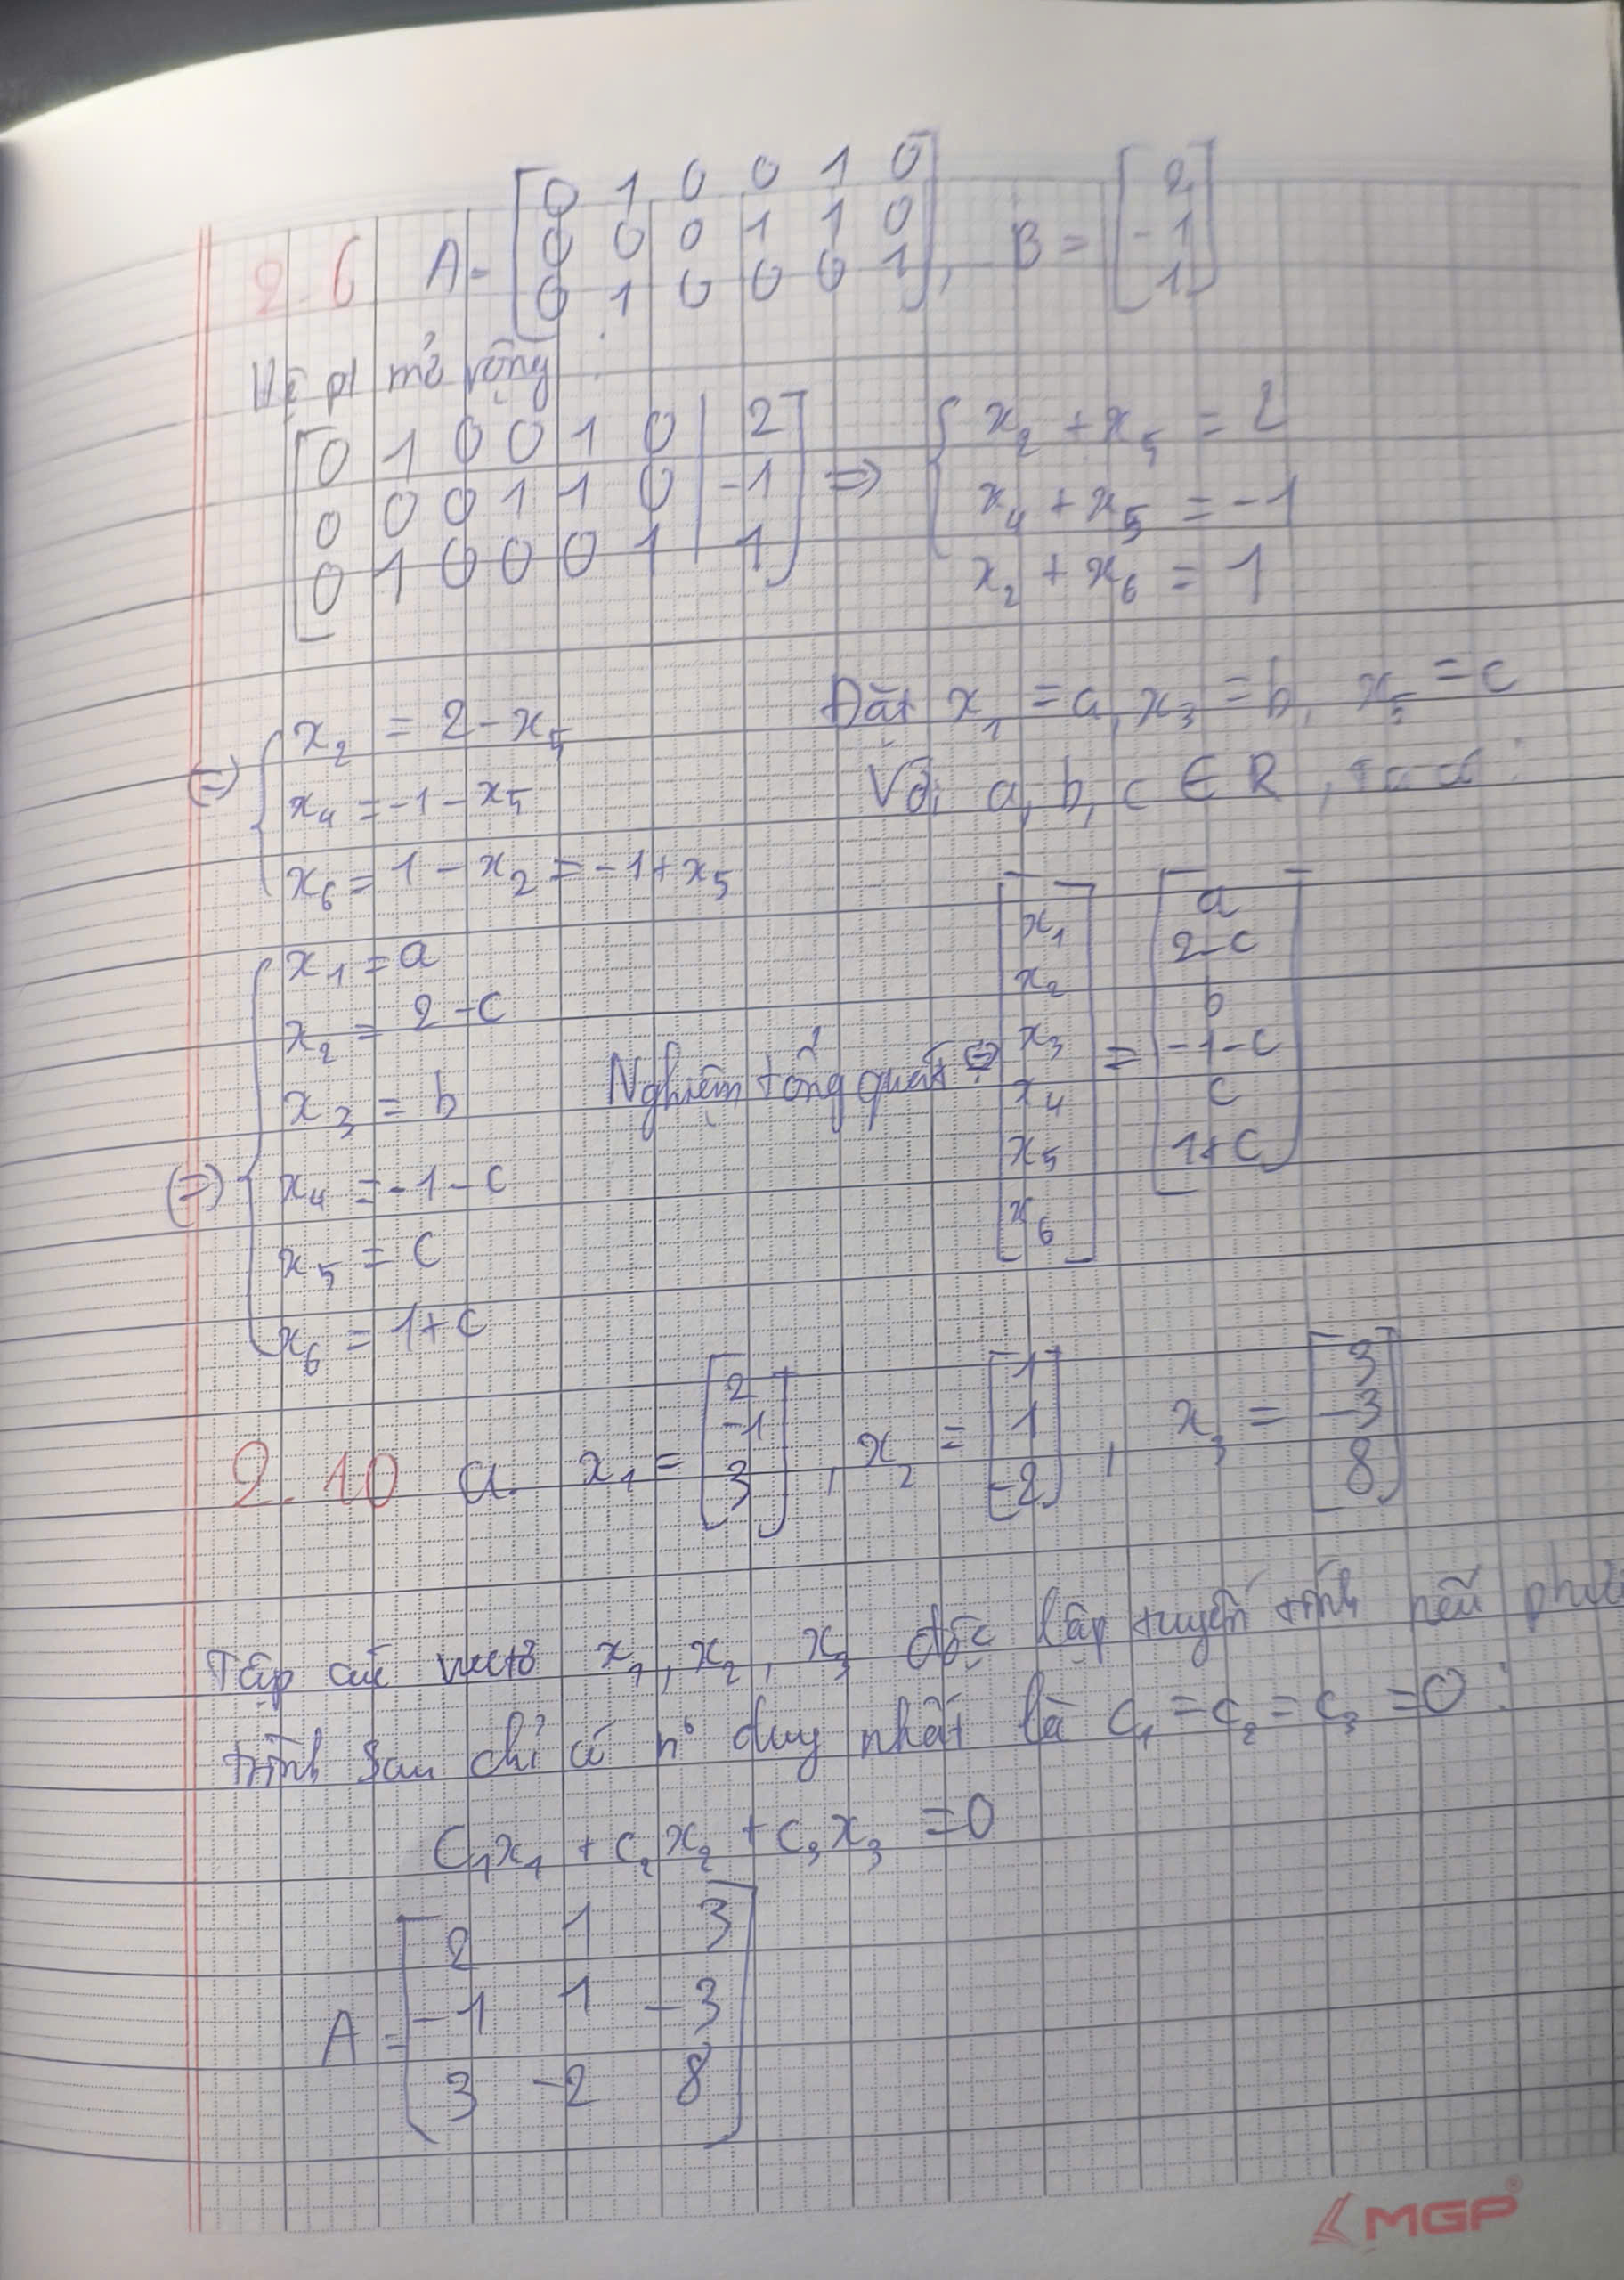 2.6 A = [0 1 0 0 1 0; 0 0 0 1 1 0; 0 1 0 0 0 1], B = [2; -1; 1]
Hệ pt mở rộng:
[0 1 0 0 1 0 | 2; 0 0 0 1 1 0 | -1; 0 1 0 0 0 1 | 1] => { x₂ + x₅ = 2
x₄ + x₅ = -1
x₂ + x₆ = 1
(=) { x₂ = 2 - x₅
x₄ = -1 - x₅
x₆ = 1 - x₂ = -1 + x₅
Đặt x₁ = a, x₃ = b, x₅ = c
Với a, b, c ∈ R, ta có:
(=) { x₁ = a
x₂ = 2 - c
x₃ = b
x₄ = -1 - c
x₅ = c
x₆ = 1 + c
Nghiệm tổng quát (=) [x₁; x₂; x₃; x₄; x₅; x₆] = [a; 2-c; b; -1-c; c; 1+c]
2.10 a. x₁ = [2; -1; 3], x₂ = [1; 1; -2], x₃ = [3; -3; 8]
Tập các vectơ x₁, x₂, x₃ độc lập tuyến tính nếu
trình sau chỉ có n° duy nhất là c₁ = c₂ = c₃ = 0:
C₁x₁ + c₂x₂ + c₃x₃ = 0
A = [2 1 3; -1 1 -3; 3 -2 8]
MGP